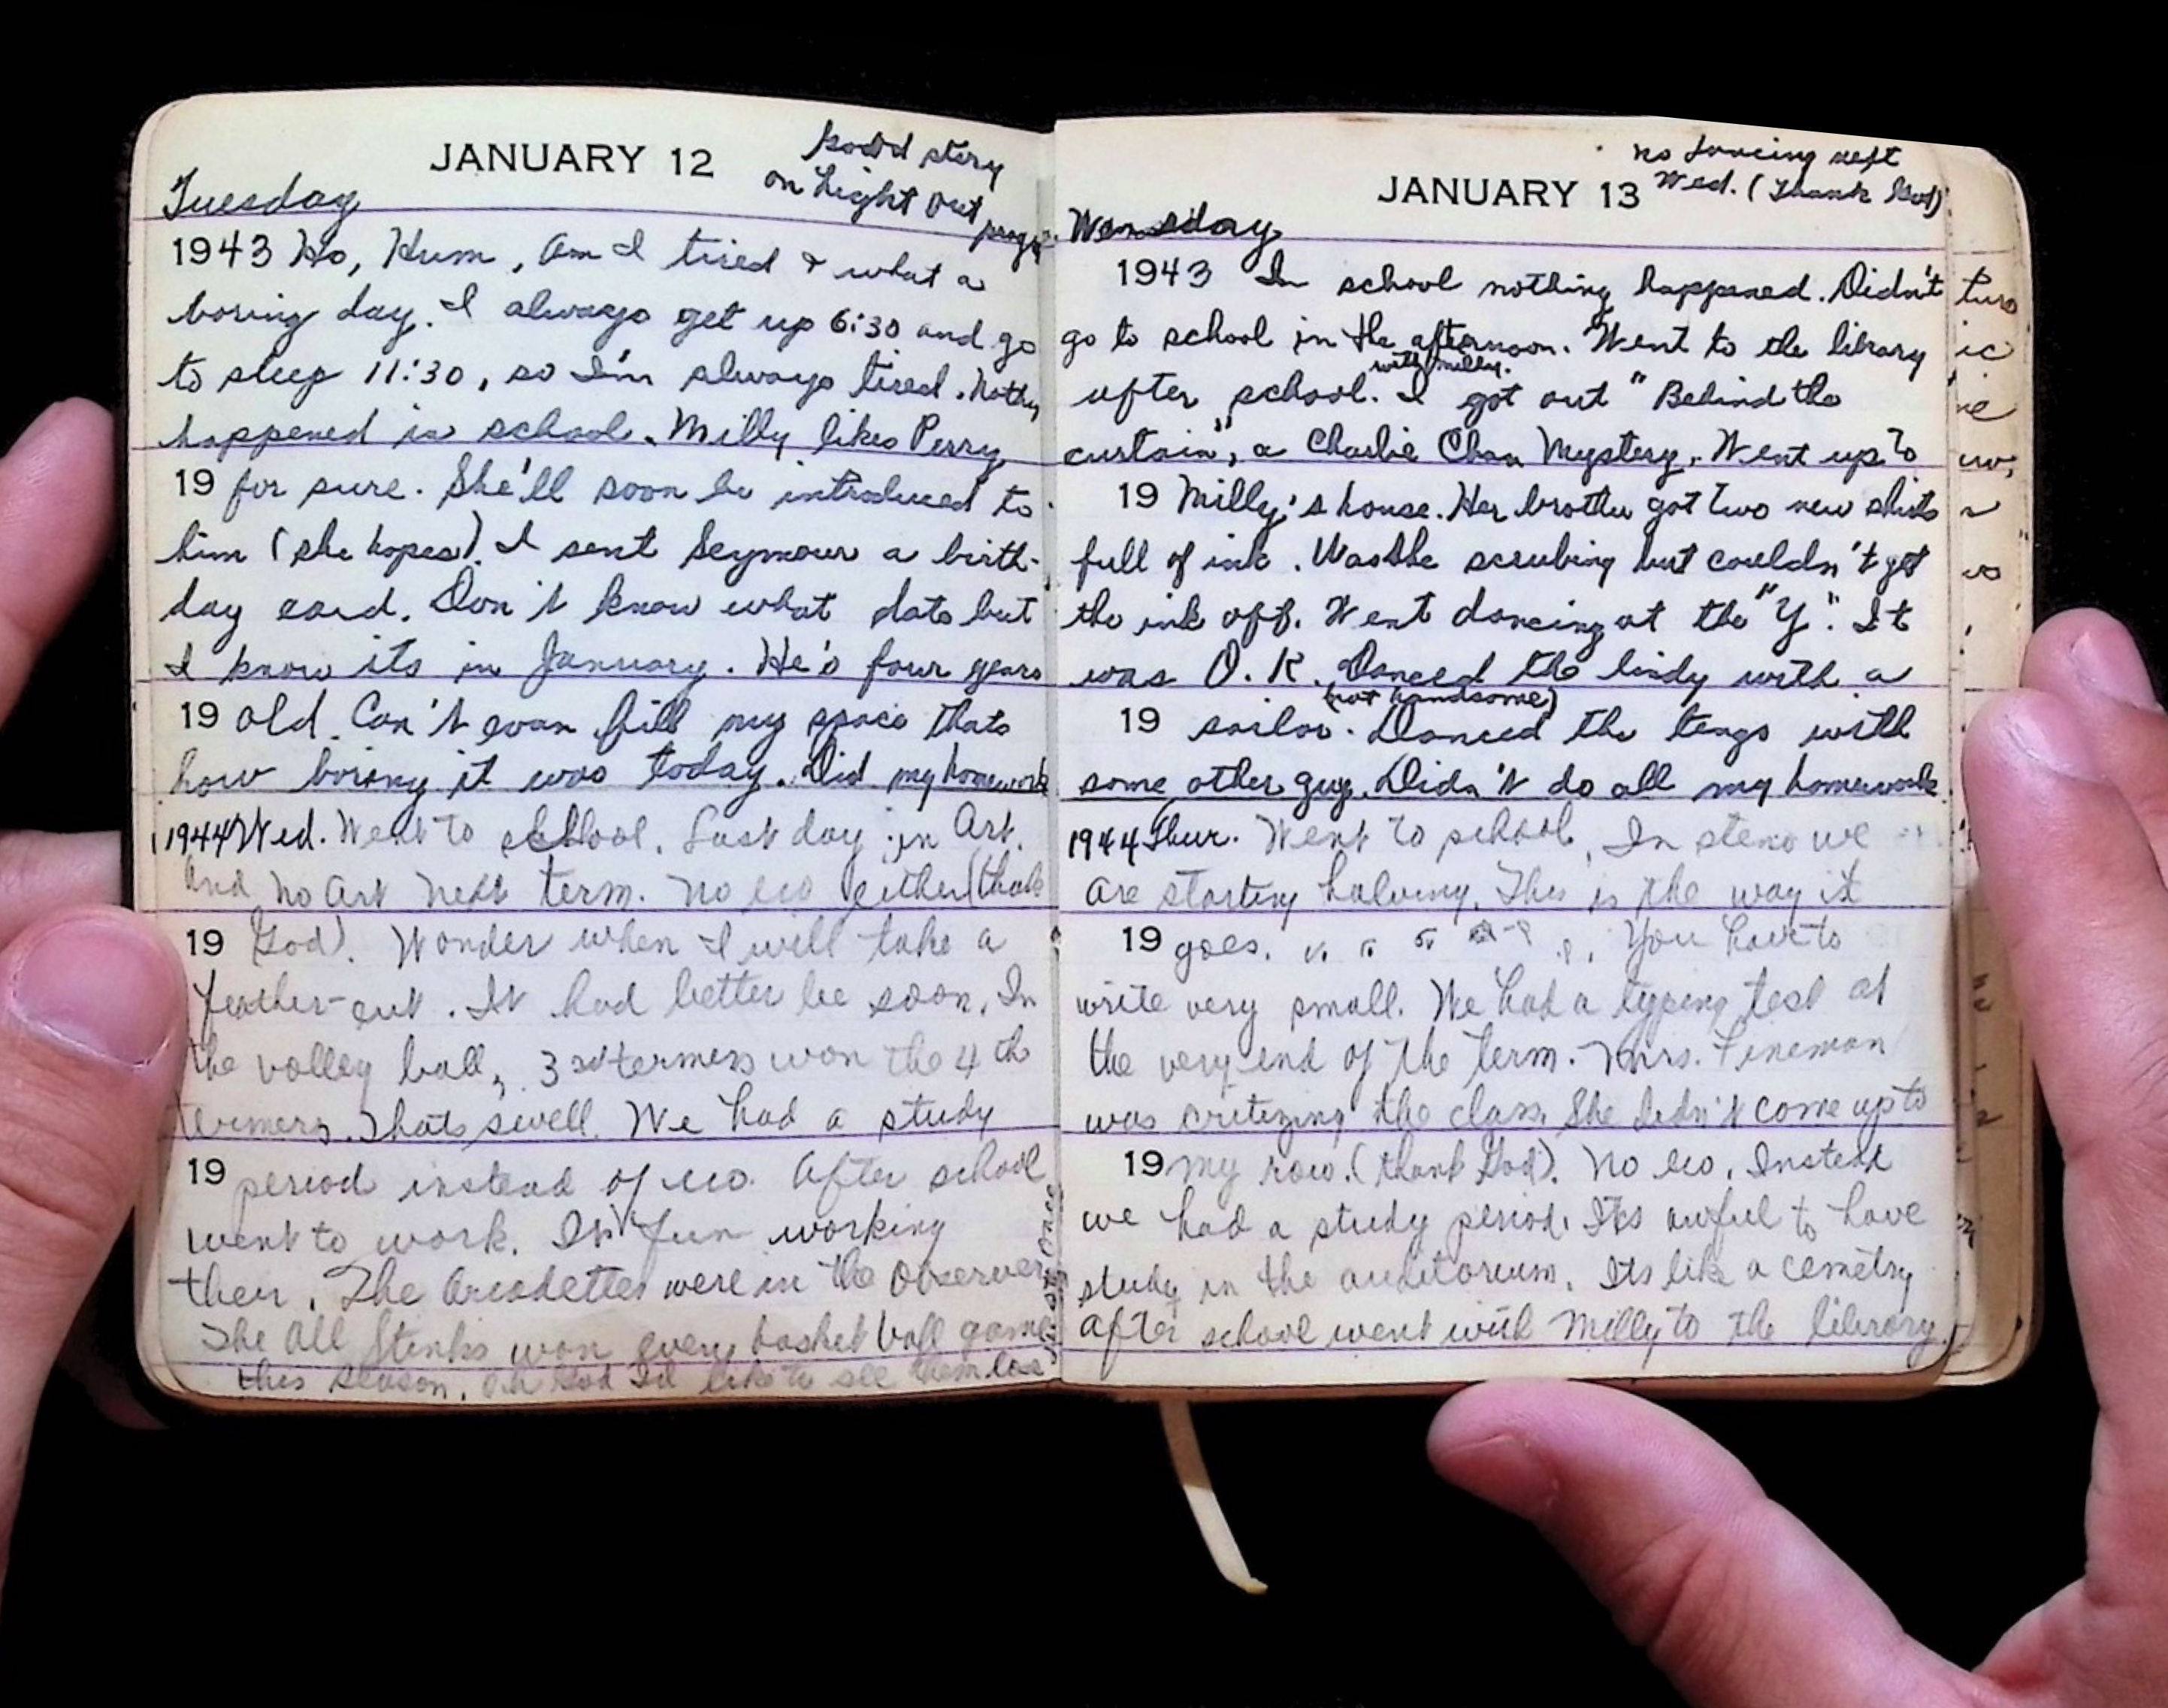 JANUARY 12
Good story
on Light Out
Tuesday
1943 Ho, Hum, am I tired & what a
boring day. I always get up 6:30 and go
to sleep 11:30, so I'm always tired. Nothing
happened in school. Milly likes Perry
19 for sure. She'll soon be introduced to
him (she hopes). I sent Seymour a birth-
day card. Don't know what date but
I know its in January. He's four years
19 old. Can't even fill my space thats
how boring it was today. Did my homework
1944 Wed. Went to school. Last day in Art.
And no Art next term. No eco either (thank
19 God). Wonder when I will take a
feather-cut. It had better be soon. In
the volley ball, 3rd termers won the 4th
termers. Thats swell. We had a study
19 period instead of eco. After school
went to work. Its fun working
their. The Arcadettes were in the Observer
The All Stinks won every basket ball game
this season. Oh God I'd like to see them lose
just once
JANUARY 13
no dancing next
Wed. (Thank God)
Wensday
1943 In school nothing happened. Didn't
go to school in the afternoon. Went to the library
with Milly.
after school. I got out "Behind the
curtain", a Charlie Chan Mystery. Went up to
19 Milly's house. Her brother got two new shirts
full of ink. Was she scrubing but couldn't get
the ink off. Went dancing at the "Y". It
was O.K. Danced the lindy with a
(not handsome)
19 sailor. Danced the tango with
some other guy. Didn't do all my homework
1944 Thur. Went to school. In steno we
are starting halving. This is the way it
19 goes. You have to
write very small. We had a typing test at
the very end of the term. Mrs. Fineman
was critizing the class. She didn't come up to
19 my row. (thank God). No eco. Instead
we had a study period. Its awful to have
study in the auditorium. Its like a cemetry
After school went with Milly to the library.